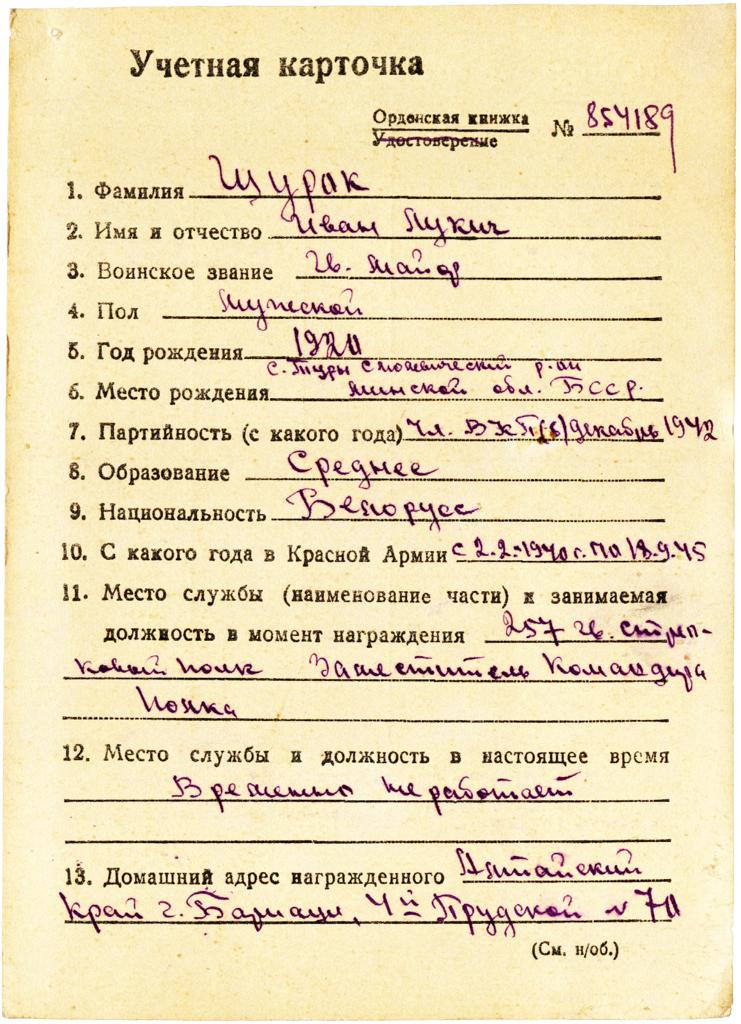 Учетная карточка
Орденская книжка
Удостоверение
№ 854189
1. Фамилия Щурак
2. Имя и отчество Иван Лукич
3. Воинское звание Гв. Майор
4. Пол Мужской
5. Год рождения 1920
с. Туры Смолевический р-он
6. Место рождения Минской обл. БССР.
7. Партийность (с какого года) Чл. ВКП(б) декабрь 1942
8. Образование Среднее
9. Национальность Белорусс
10. С какого года в Красной Армии с 2.2-1940 г. по 18.9.45
11. Место службы (наименование части) и занимаемая
должность в момент награждения 257 гв. стрел-
ковый полк Заместитель Командира
Полка
12. Место службы и должность в настоящее время
Временно не работает
13. Домашний адрес награжденного Алтайский
Край г. Барнаул, 4й Прудской № 70
(См. н/об.)